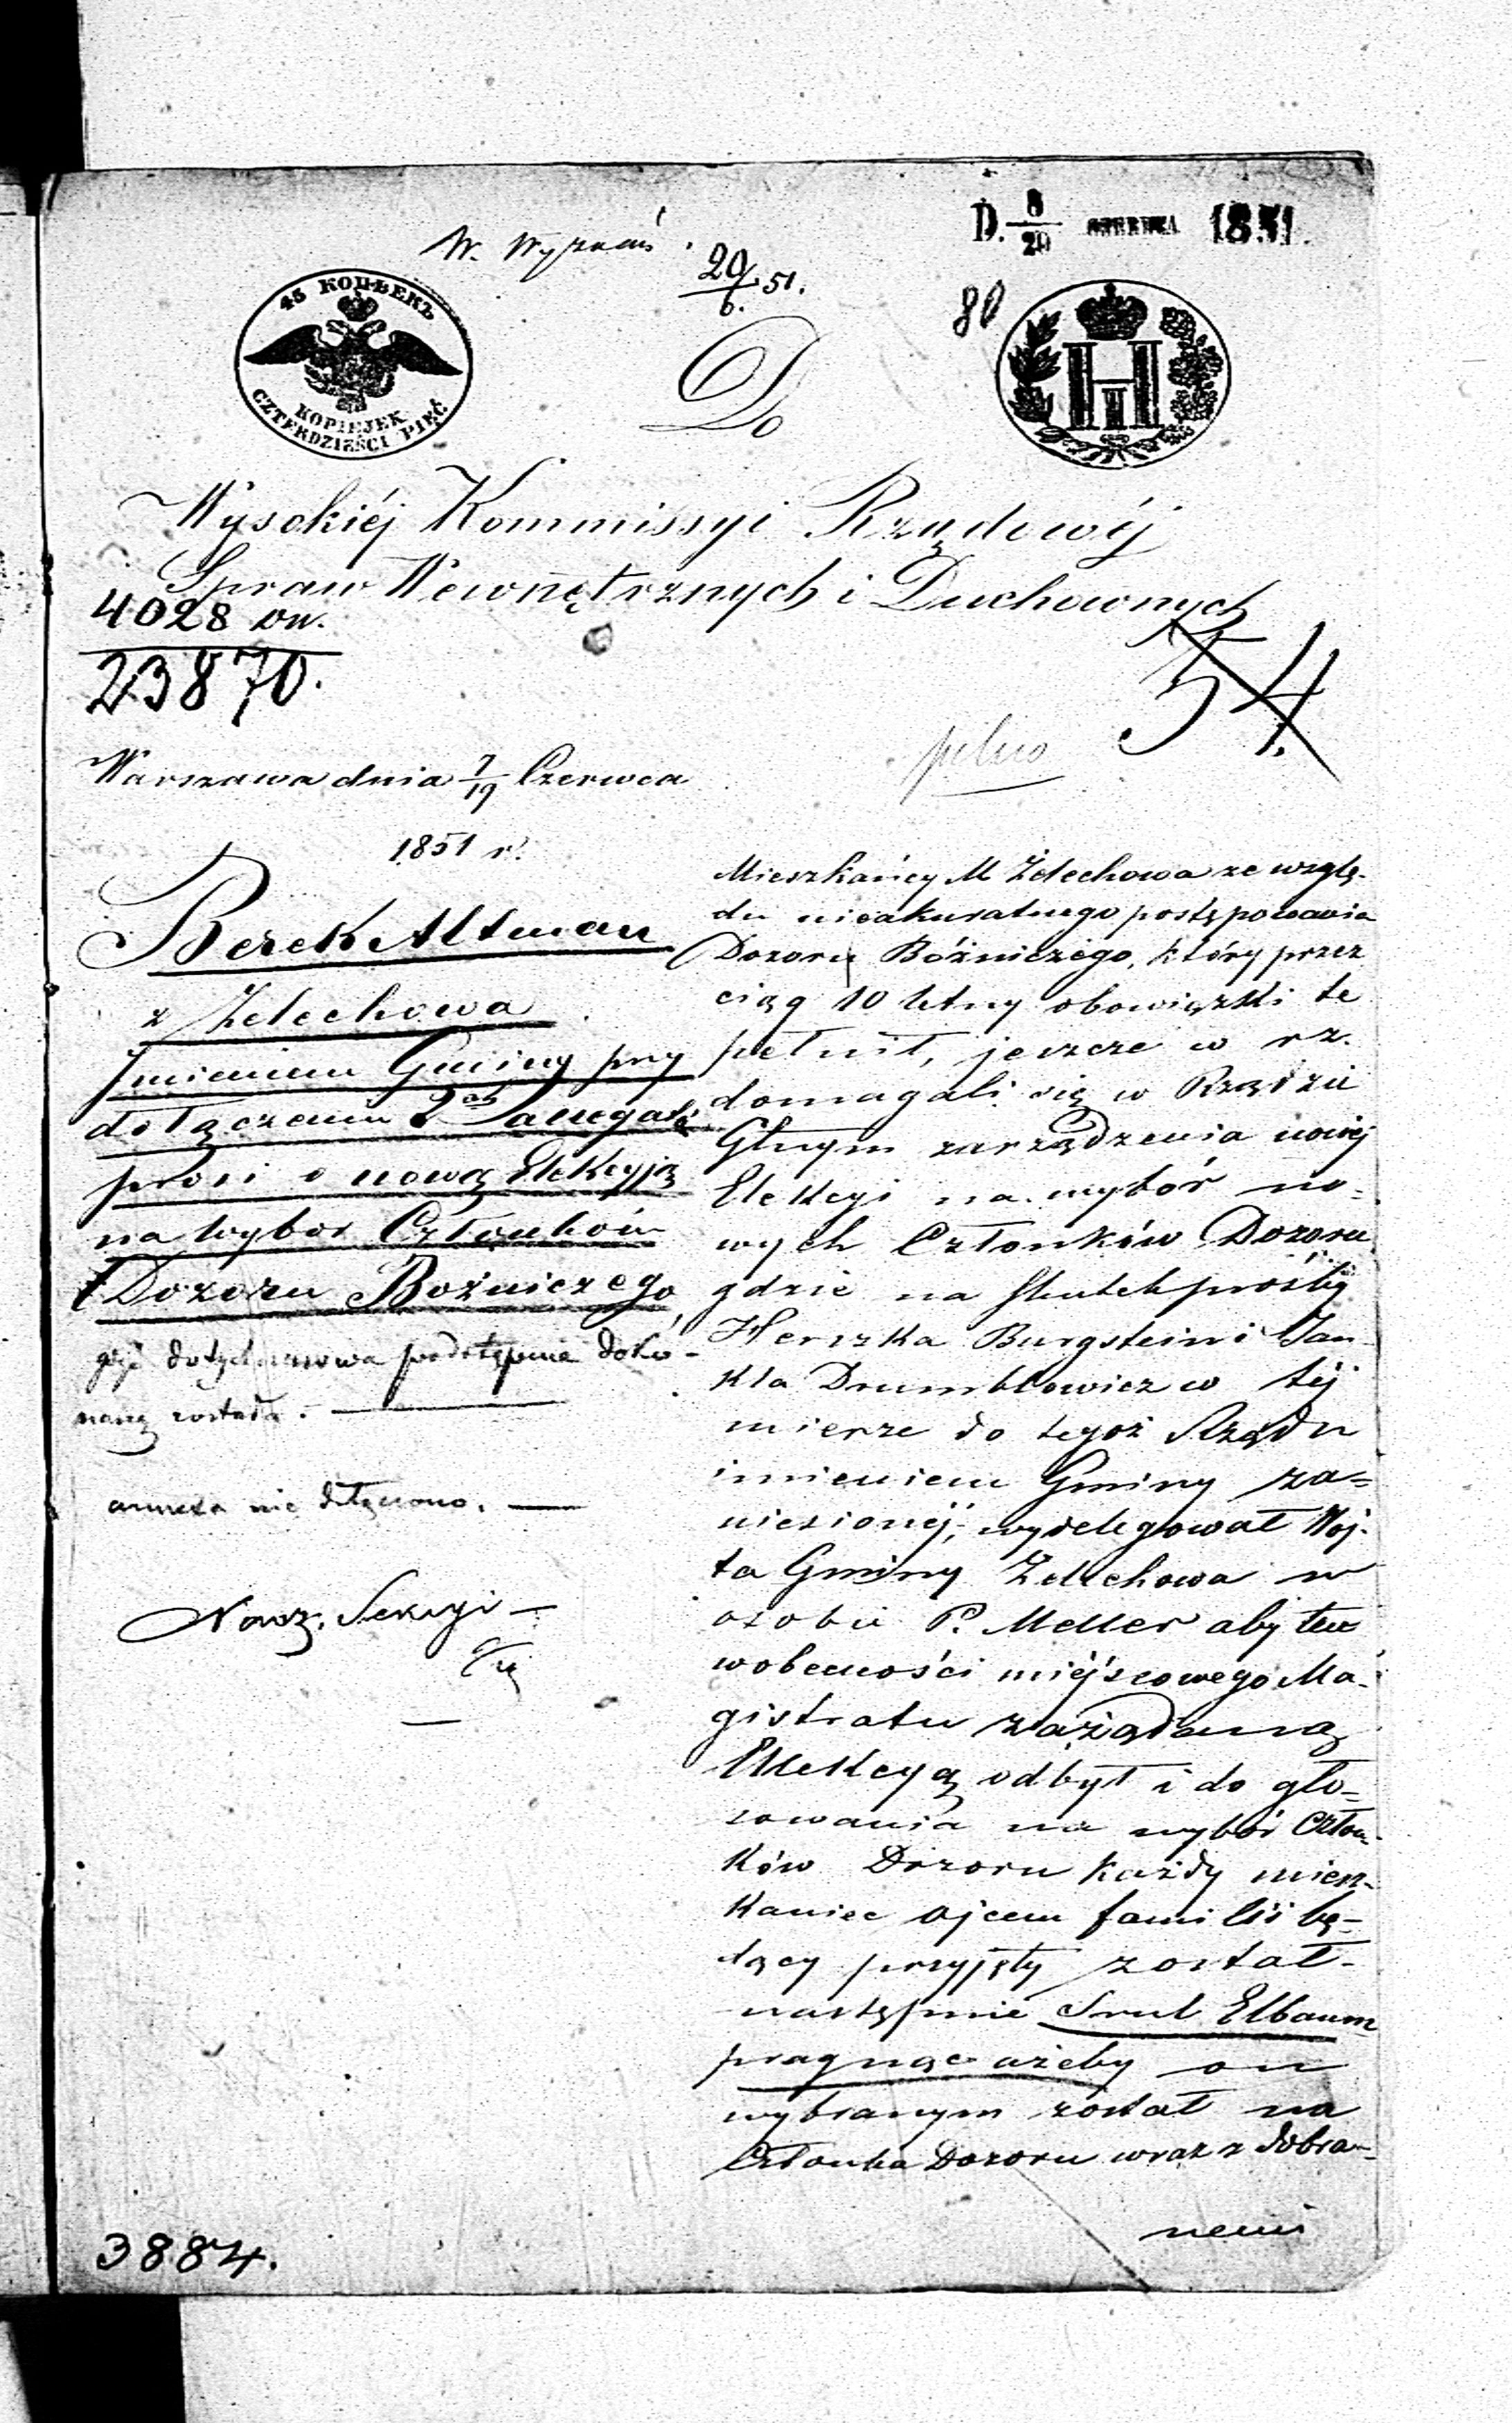 D. 8/20 CZERWCA 1851.
W. Wyznań
20/6. 51.
80
45 КОПѢЕКЪ
KOPIEJEK
CZTERDZIEŚCI PIĘĆ
H
Do
Wysokiéj Kommissyi Rządowéj
Spraw Wewnętrznych i Duchownych
4028 ow.
23870.
54.
pilno
Warszawa dnia 7/19 Czerwca
1851 r.
Berek Altman
z Żelechowa
Imieniem Gminy przy
dołączeniu 2ch Annexów
prosi o nową Elekcyją
na wybor Członków
Dozoru Bożniczego
gdyż dotychczasowa podstępnie doko-
naną została.
annexa nie dołączono.
Nacz. Sekcyi
Mieszkańcy M Żelechowa ze wzglę-
du nieakuratnego postępowania
Dozoru Bóżniczégo, który przez
ciąg 10 letny obowiązki te
pełnił, jeszcze w rz.
domagali się w Rządzie
Głnym zarządzenia nowej
Elekcyi na wybór no=
wych Członków Dozoru
gdzie na skutek prośby
Herszka Burgstein i Jan-
kla Drumblowicz w téj
mierze do tegoż Rządu
imieniem Gminy za=
niesionéj, wydelegował Wój-
ta Gminy Żelechowa w
osobie P. Meller aby ten
wobecności miéjscowego Ma-
gistratu zażądaną
Elekcyą odbył i do gło-
sowania na wybór Człon-
ków Dozoru każdy miesz-
kaniec ojcem familii bę-
dący przyjęty został-
następnie Srul Elbaum
pragnąc ażeby on
wybranym został na
Członka Dozoru wraz z dobra-
nemi
3884.